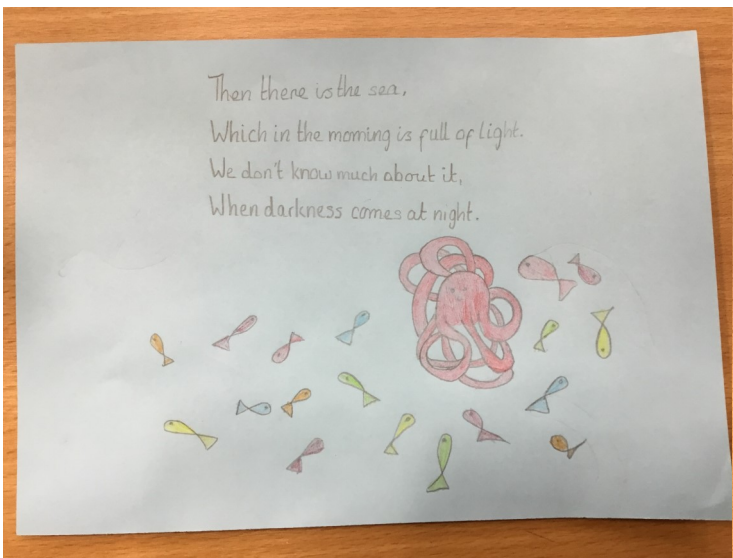 Then there is the sea,
Which in the morning is full of light.
We don't know much about it,
When darkness comes at night.